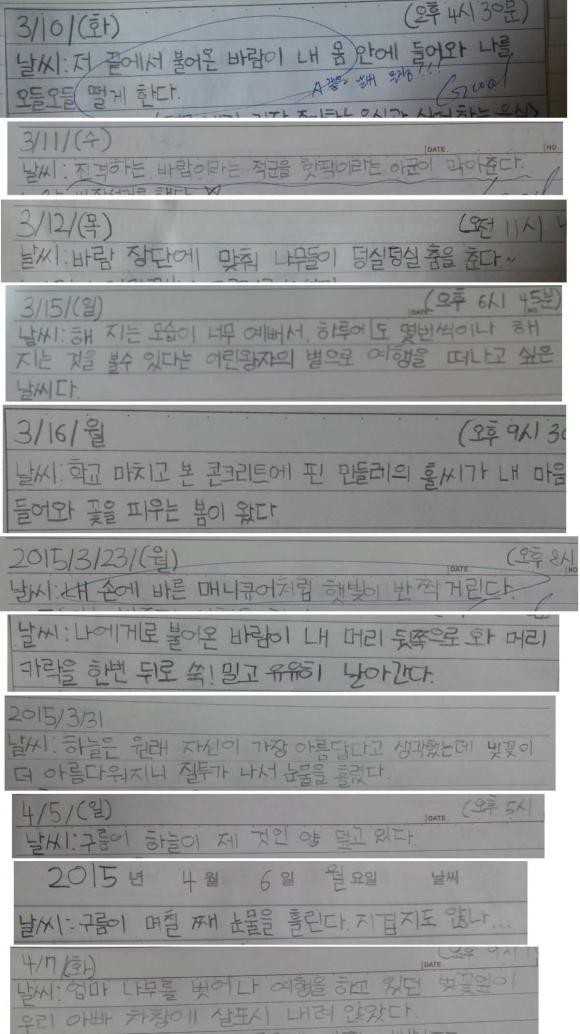 3/10/(화) (오후 4시 30분)
날씨: 저 끝에서 불어온 바람이 내 몸 안에 들어와 나를
오들오들 떨게 한다.
Good
3/11/(수) DATE NO
날씨: 진격하는 바람이라는 적군을 핫팩이라는 아군이 막아준다.
3/12/(목) (오전 11시
날씨: 바람 장단에 맞춰 나무들이 덩실덩실 춤을 춘다~
3/15/(일) DATE (오후 6시 45분)
날씨: 해 지는 모습이 너무 예뻐서, 하루에도 몇번씩이나 해
지는 것을 볼수 있다는 어린왕자의 별으로 여행을 떠나고 싶은
날씨다.
3/16/월 (오후 9시 30
날씨: 학교 마치고 본 콘크리트에 핀 민들레의 홀씨가 내 마음
들어와 꽃을 피우는 봄이 왔다
2015/3/23/(월) DATE (오후 8시 NO
날씨: 내 손에 바른 매니큐어처럼 햇빛이 반짝거린다.
날씨: 나에게로 불어온 바람이 내 머리 뒷쪽으로 와 머리
카락을 한번 뒤로 쑥! 밀고 유유히 날아간다.
2015/3/31
날씨: 하늘은 원래 자신이 가장 아름답다고 생각했는데 벚꽃이
더 아름다워지니 질투가 나서 눈물을 흘렸다.
4/5/(일) DATE (오후 5시
날씨: 구름이 하늘이 제 것인 양 덮고 있다.
2015 년 4 월 6 일 월 요일 날씨
날씨: 구름이 며칠 째 눈물을 흘린다. 지겹지도 않나...
4/7/(화) DATE
날씨: 엄마 나무를 벗어나 여행을 하고 있던 벚꽃잎이
우리 아빠 차창에 살포시 내려 앉았다.